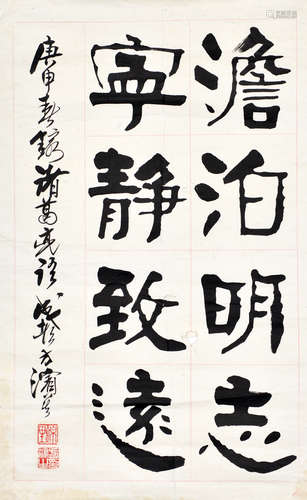 澹泊明志
寧静致遠
庚申春錄諸葛亮語